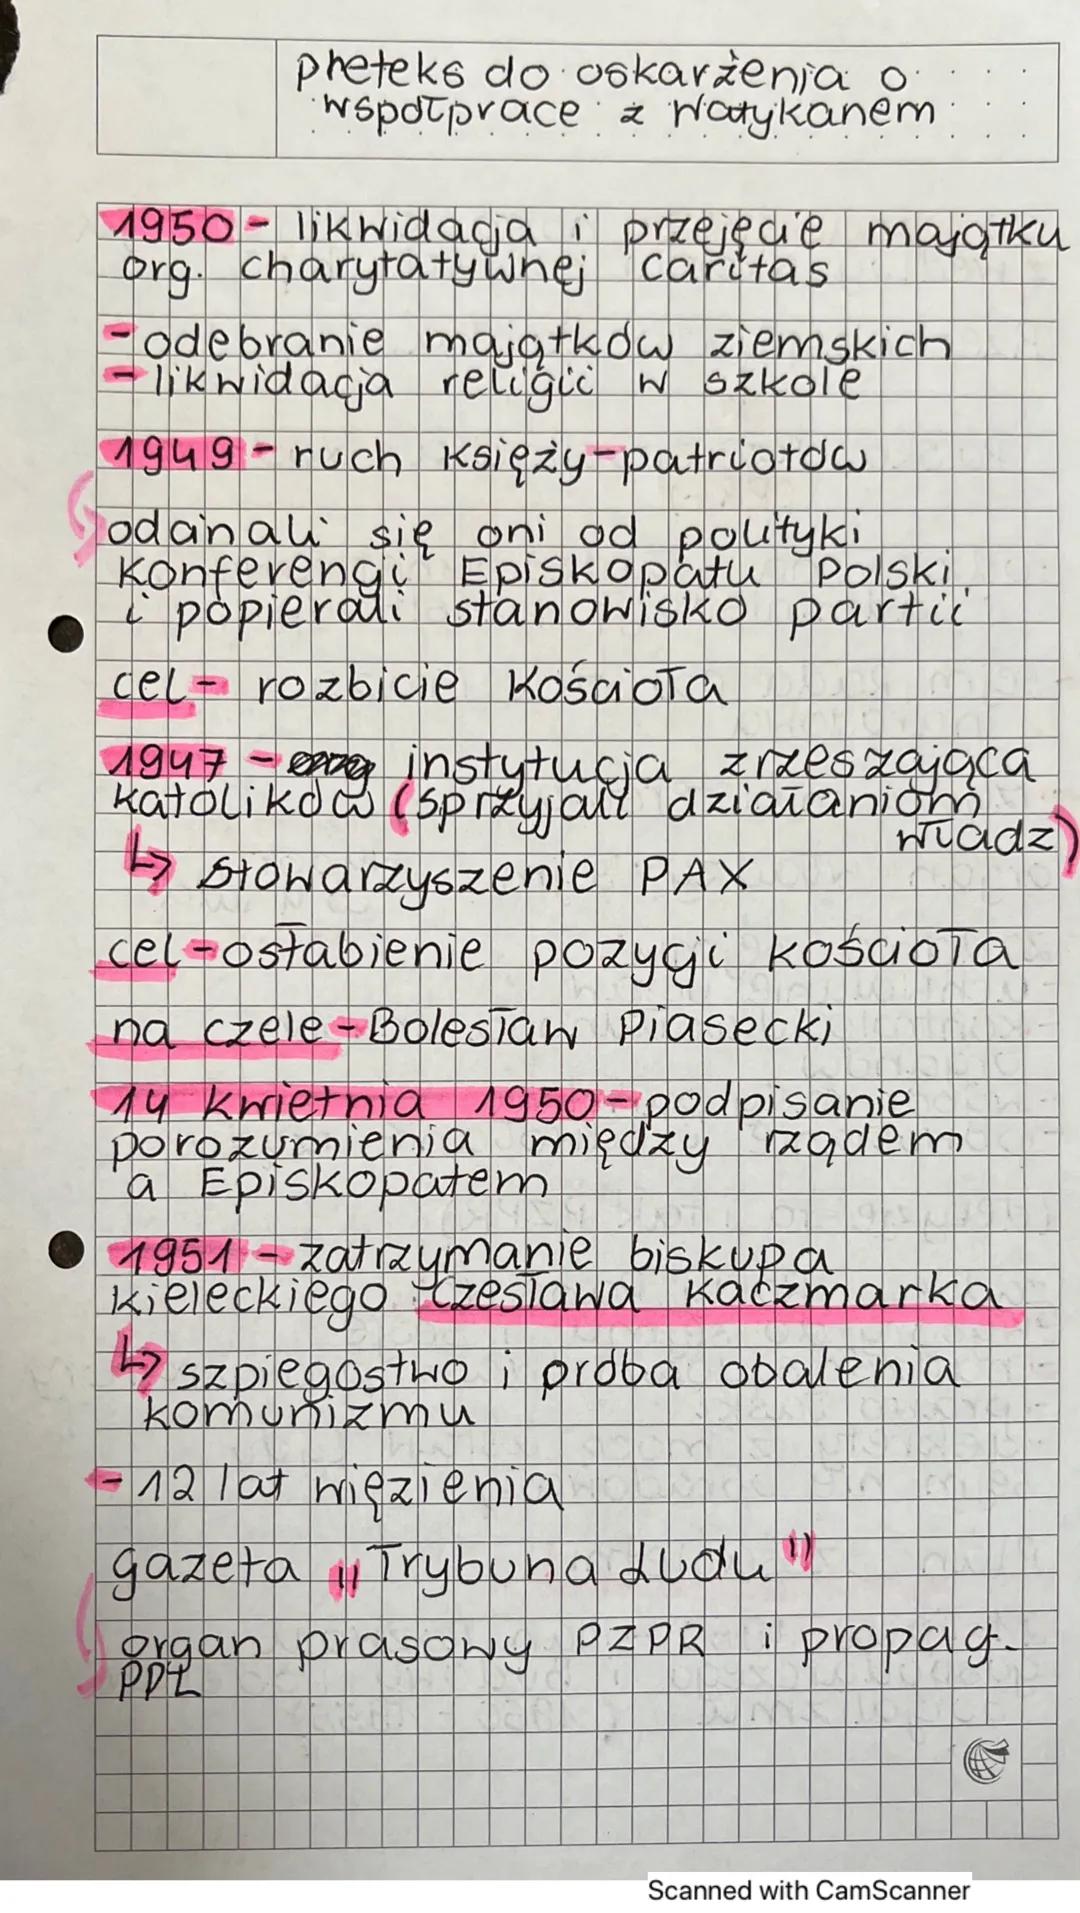 preteks do oskarżenia o
współprace z Watykanem
1950 - likwidacja i przejęcie majątku
org. charytatywnej caritas
- odebranie majątków ziemskich
- likwidacja religii w szkole
1949 - ruch księży-patriotów
odcinali się oni od polityki
Konferencji Episkopatu Polski
i popierali stanowisko partii
cel - rozbicie Kościoła
1947 - instytucja zrzeszająca
katolików (sprzyjali działaniom
władz)
↳ Stowarzyszenie PAX
cel - osłabienie pozycji kościoła
na czele - Bolesław Piasecki
14 kwietnia 1950 - podpisanie
porozumienia między rządem
a Episkopatem
1951 - zatrzymanie biskupa
kieleckiego Czesława Kaczmarka
↳ szpiegostwo i próba obalenia
komunizmu
- 12 lat więzienia
gazeta "Trybuna Ludu"
organ prasowy PZPR i propag.
Scanned with CamScanner